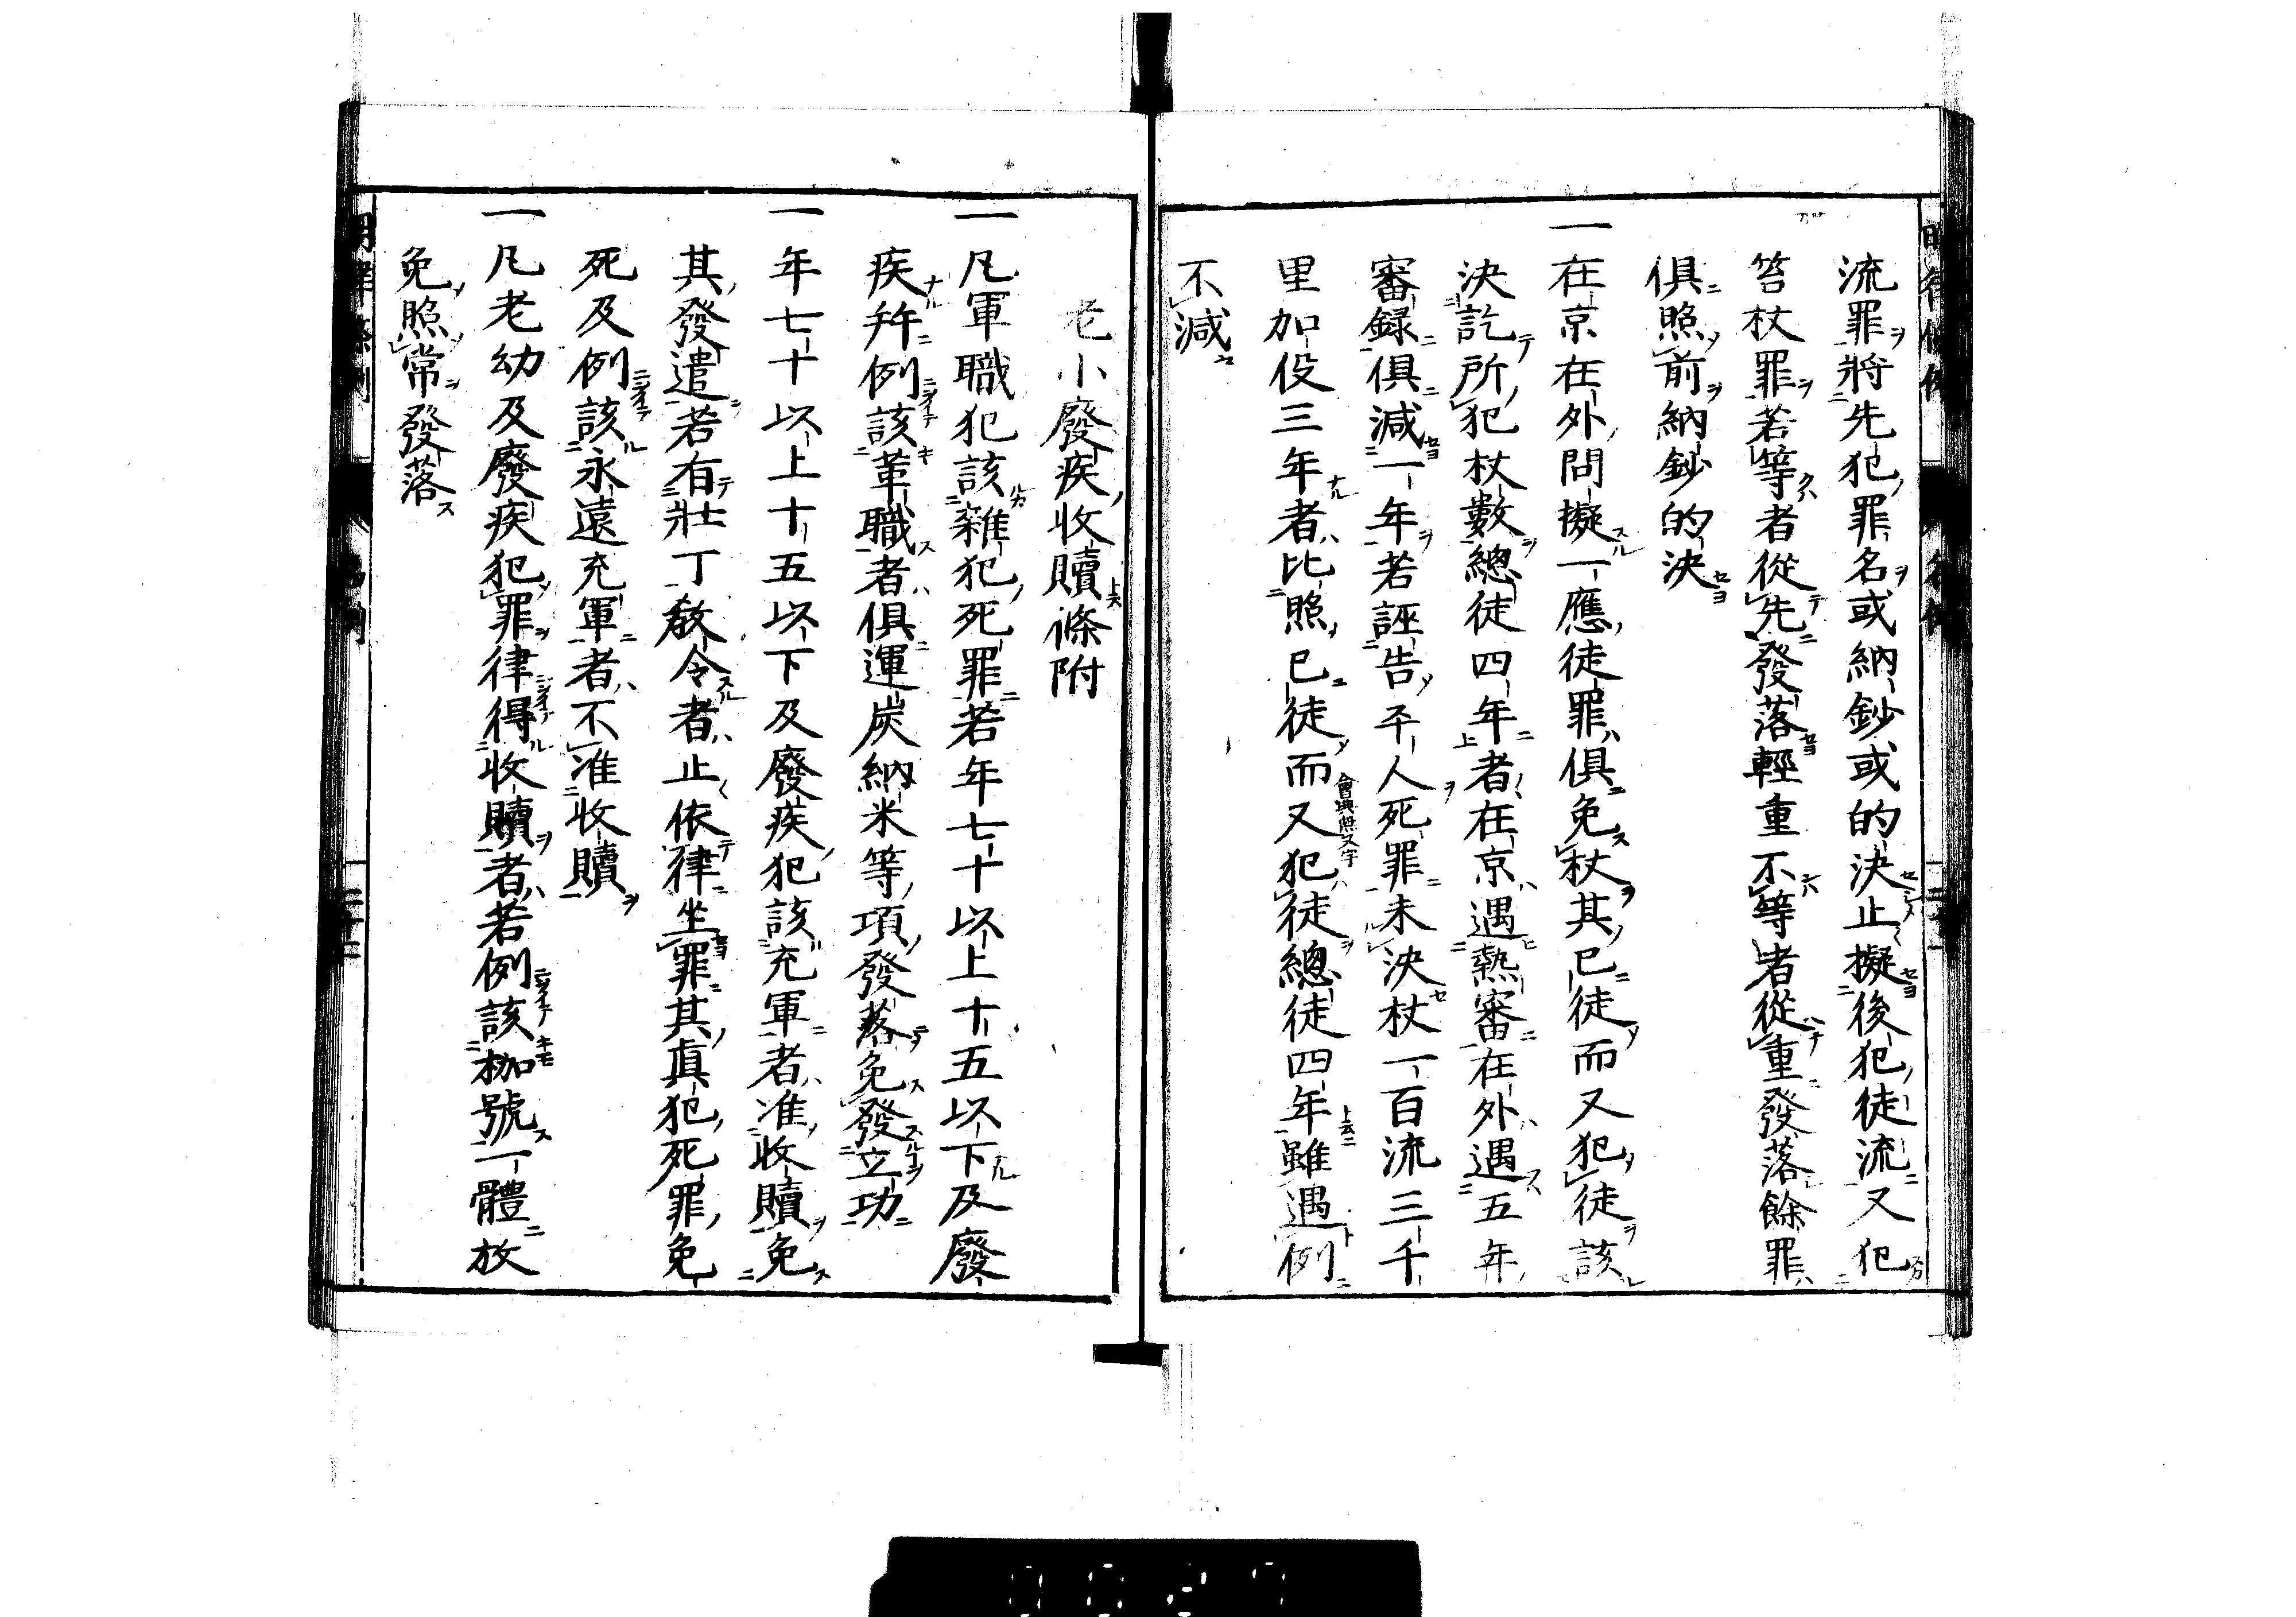 流罪將先犯罪名或納鈔或的決止擬後犯徒流又犯
笞杖罪若等者從先發落輕重不等者從重發落餘罪
俱照前納鈔的決
一在京在外問擬一應徒罪俱免杖其已徒而又犯徒該
決訖所犯杖數總徒四年者在京遇熱審在外遇五年
審録俱減一年若誣告平人死罪未決杖一百流三千
里加役三年者比照已徒而又犯徒總徒四年雖遇例
會典無又字
不減
老小廢疾收贖條附
一凡軍職犯該雜犯死罪若年七十以上十五以下及廢
疾幷例該革職者俱運炭納米等項發落免發立功
一年七十以上十五以下及廢疾犯該充軍者准收贖免
其發遣若有壯丁教令者止依律坐罪其真犯死罪免
死及例該永遠充軍者不准收贖
一凡老幼及廢疾犯罪律得收贖者若例該枷號一體放
免照常發落